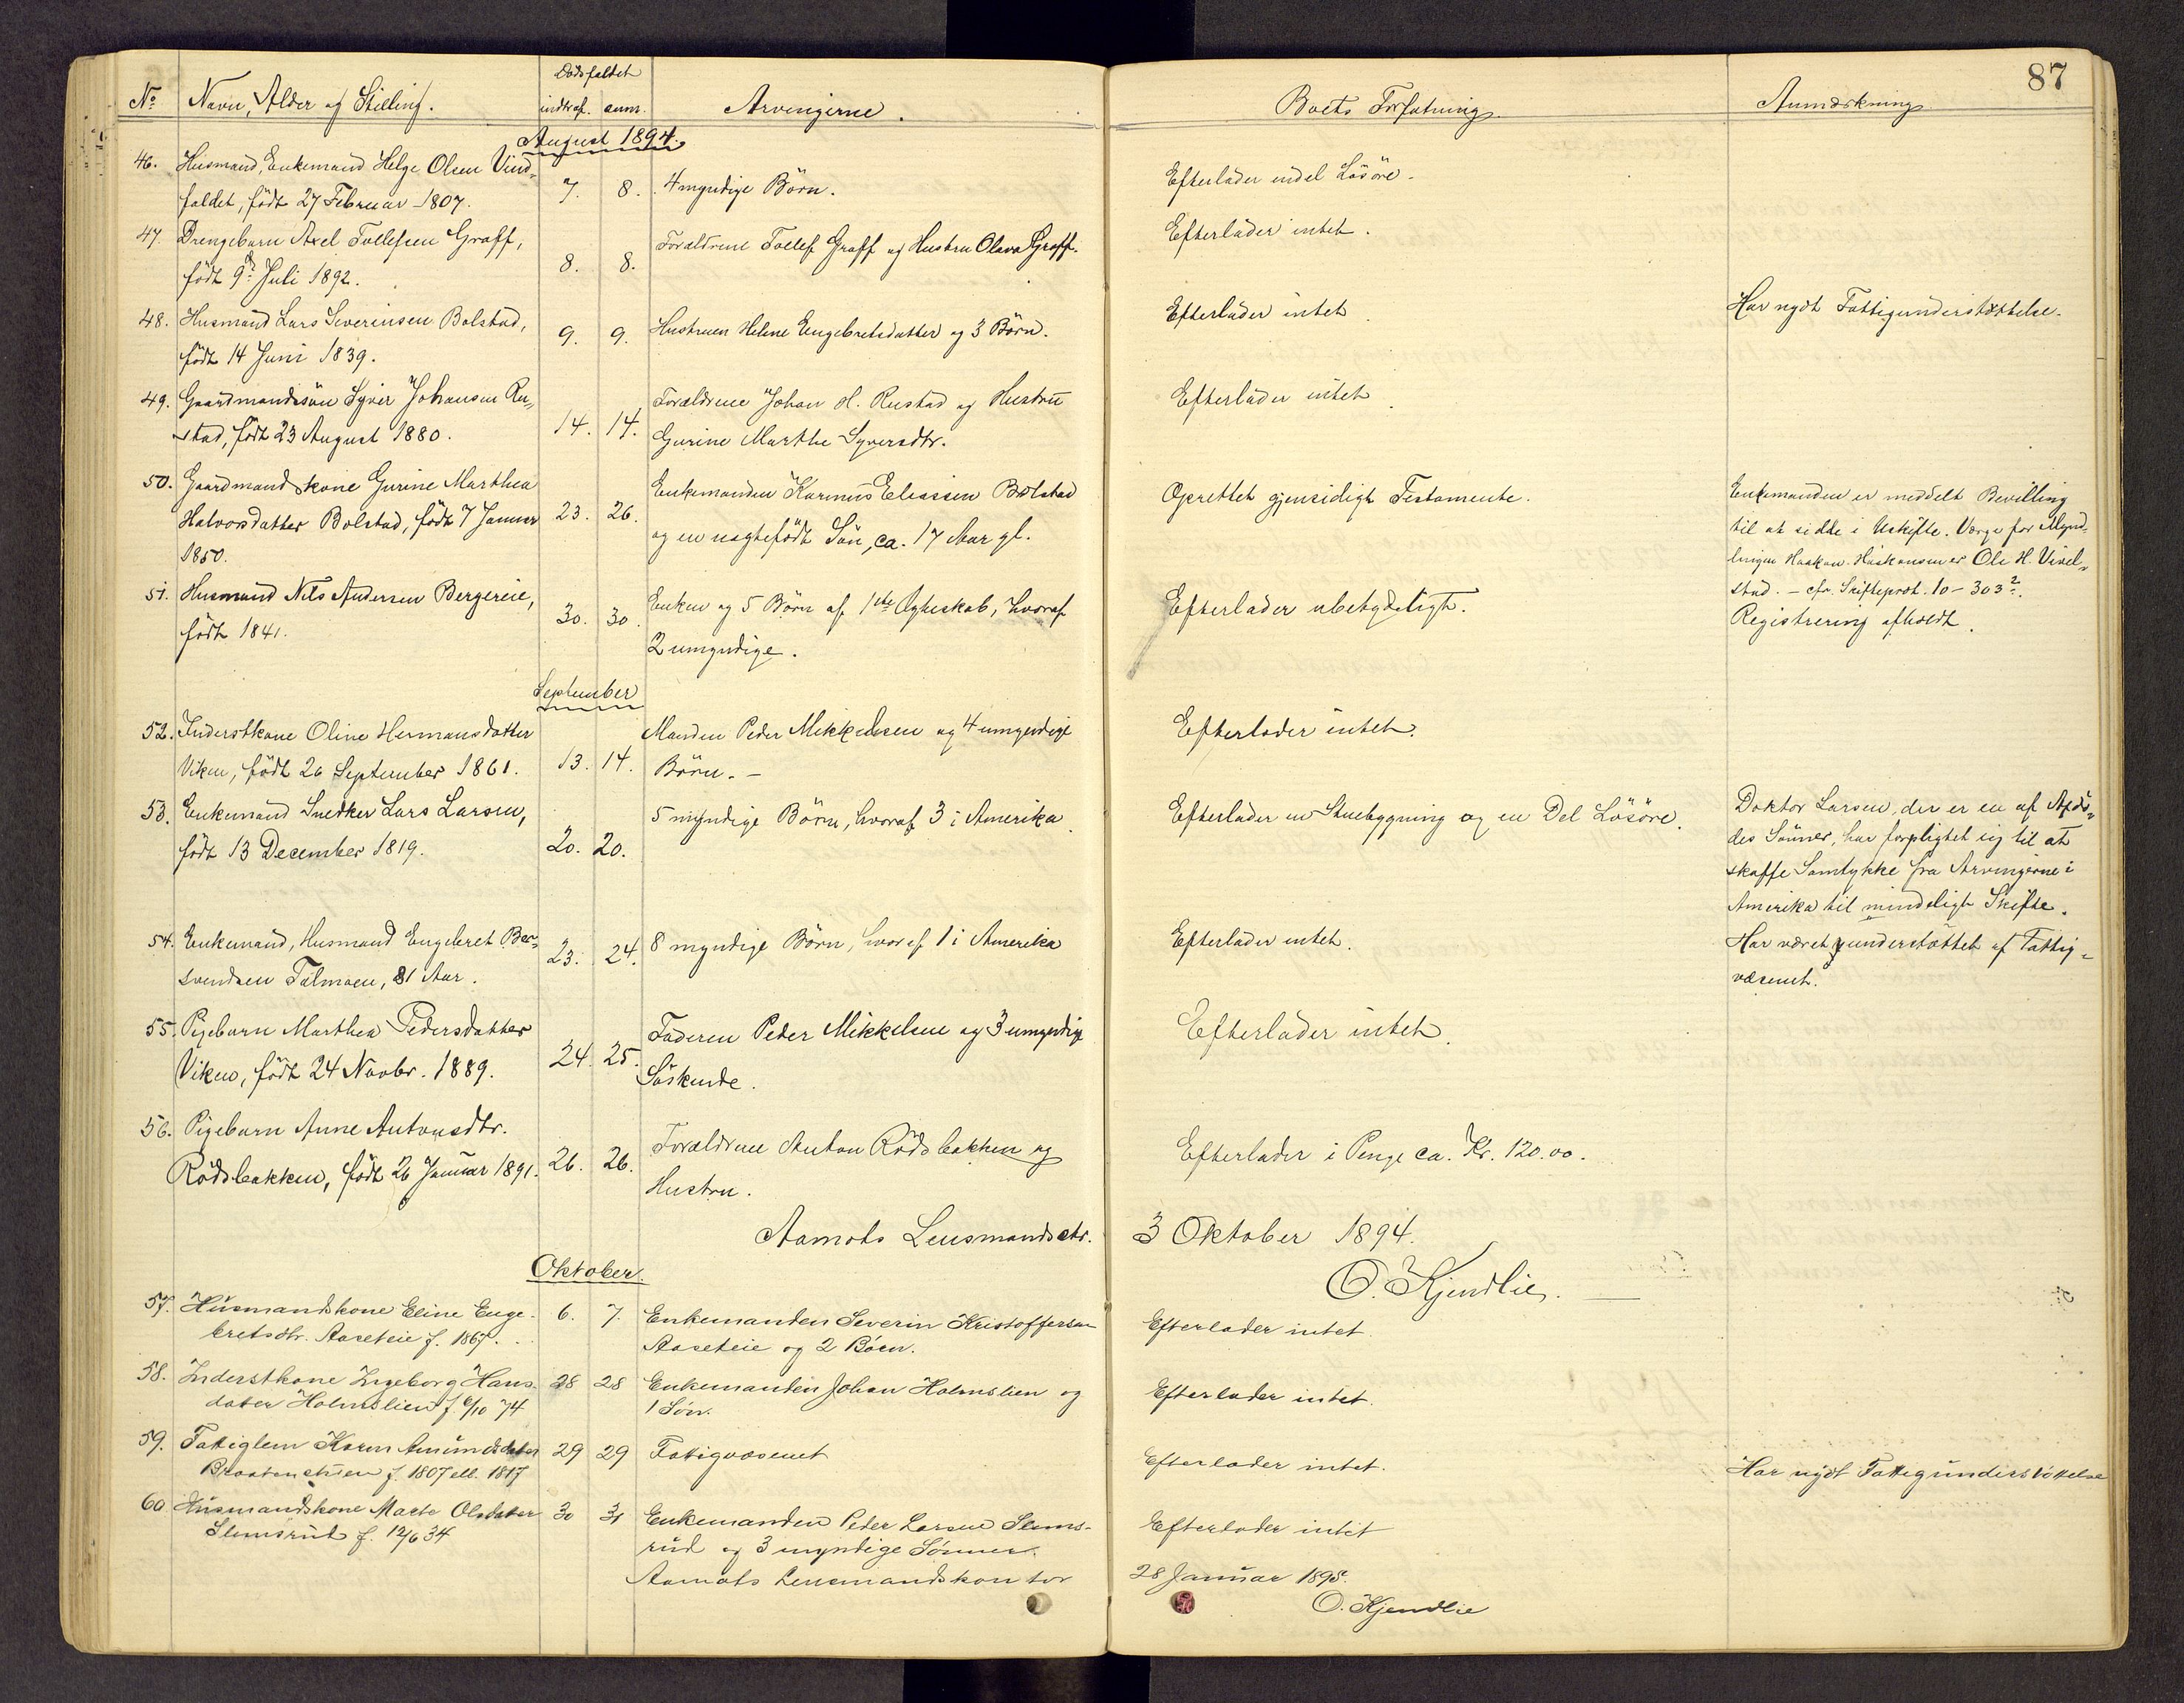 87
Dödsfaldet
No Navn, Alder og Stilling. indtraf. anm. Arvingerne. Boets Forfatning. Anmærkning
August 1894.
46. Husmand, Enkemand Helge Olsen Vind-
faldet, födt 27 Februar 1807. 7. 8. 4 myndige Börn. Efterlader endel Lösöre.
47. Drengebarn Axel Tollefsen Graff,
födt 9de Juli 1892. 8. 8. Forældrene Tollef Graff og Hustru Olava Graff. Efterlader intet.
48. Husmand Lars Severinsen Bolstad,
födt 14 Juni 1839. 9. 9. Hustruen Helene Engebretsdatter og 3 Börn. Efterlader intet Har nydt Fattigunderstöttelse.
49. Gaardmandssön Syver Johansen Ru-
stad, födt 23 August 1880. 14. 14. Forældrene Johan H. Rustad og Hustru
Gurine Marthe Syversdtr. Efterlader intet
50. Gaardmandskone Gurine Marthea
Halvorsdatter Bolstad, födt 7 Januar
1850. 23. 26. Enkemanden Karinus Eliassen Bolstad
og en uægtefödt Sön, ca. 17 Aar gl. Oprettet gjensidigt Testamente. Enkemanden er meddelt Bevilling
til at sidde i Uskifte. Værge for Mynd-
lingen Haakon Haakonsen er Ole H. Vivel-
stad. - cfr. Skifteprot. 10 - 303 2.
51. Husmand Nils Andersen Bergereie,
födt 1841. 30. 30. Enken og 5 Börn af 1ste Ægteskab, hvoraf
2 umyndige. Efterlader ubetydeligt. Registrering afholdt.
September
52. Inderstkone Oline Hermansdatter
Viken, födt 26 September 1861. 13. 14. Manden Peder Mikkelsen og 4 umyndige
Börn. - Efterlader intet.
53. Enkemand Snedker Lars Larsen,
födt 13 December 1819. 20. 20. 5 myndige Börn, hvoraf 3 i Amerika. Efterlader en Stuebygning og en Del Lösöre. Doktor Larsen, der er en af Afdö-
des Sönner, har forpligtet sig til at
skaffe Samtykke fra Arvingerne i
Amerika til mindeligt Skifte.
54. Enkemand, Husmand Engebret Ber-
svendsen Talmoen, 81 Aar. 23. 24. 8 myndige Börn, hvoraf 1 i Amerika Efterlader intet. Har været understöttet af Fattig-
væsenet.
55. Pigebarn Marthea Pedersdatter
Viken, födt 24 Novbr. 1889. 24. 25. Faderen Peder Mikkelsen og 3 umyndige
Söskende. Efterlader intet.
56. Pigebarn Anne Antonsdtr.
Rödsbakken, födt 26 Januar 1891. 26. 26. Forældrene Anton Rödsbakken og
Hustru. Efterlader i Penge ca. Kr. 120.00.
Aamots Lensmandsktr. 3 Oktober 1894.
O. Kjendlie.
Oktober.
57. Husmandskone Eline Enge-
bretsdtr. Aaseteie f. 1867. 6. 7. Enkemanden Severin Kristoffersen
Aaseteie og 2 Börn. Efterlader intet.
58. Inderstkone Ingeborg Hans-
datter Holmslien f. 6/10 74 28 28 Enkemanden Johan Holmslien og
1 Sön. Efterlader intet.
59. Fattiglem Karen Amundsdatter
f. 1807 ell. 1817 29 29 Fattigvæsenet Efterlader intet. Har nydt Fattigunderstöttelse
60 Husmandskone Marte Olsdatter
Slemsrud f. 12/6 34 30 31 Enkemanden Peder Larsen Slems-
rud og 3 myndige Sönner. Efterlader intet
Aamots Lensmandskontor 28 Januar 1895.
O. Kjendlie